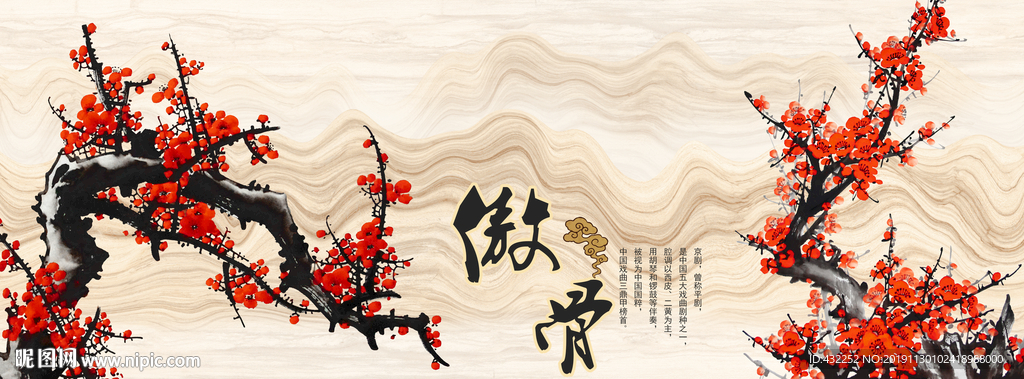 傲
骨
京剧，曾称平剧，
是中国五大戏曲剧种之一，
腔调以西皮、二黄为主，
用胡琴和锣鼓等伴奏，
被视为中国国粹，
中国戏曲三鼎甲榜首。
昵图网 www.nipic.com
ID:432252 NO:20191130102418988000